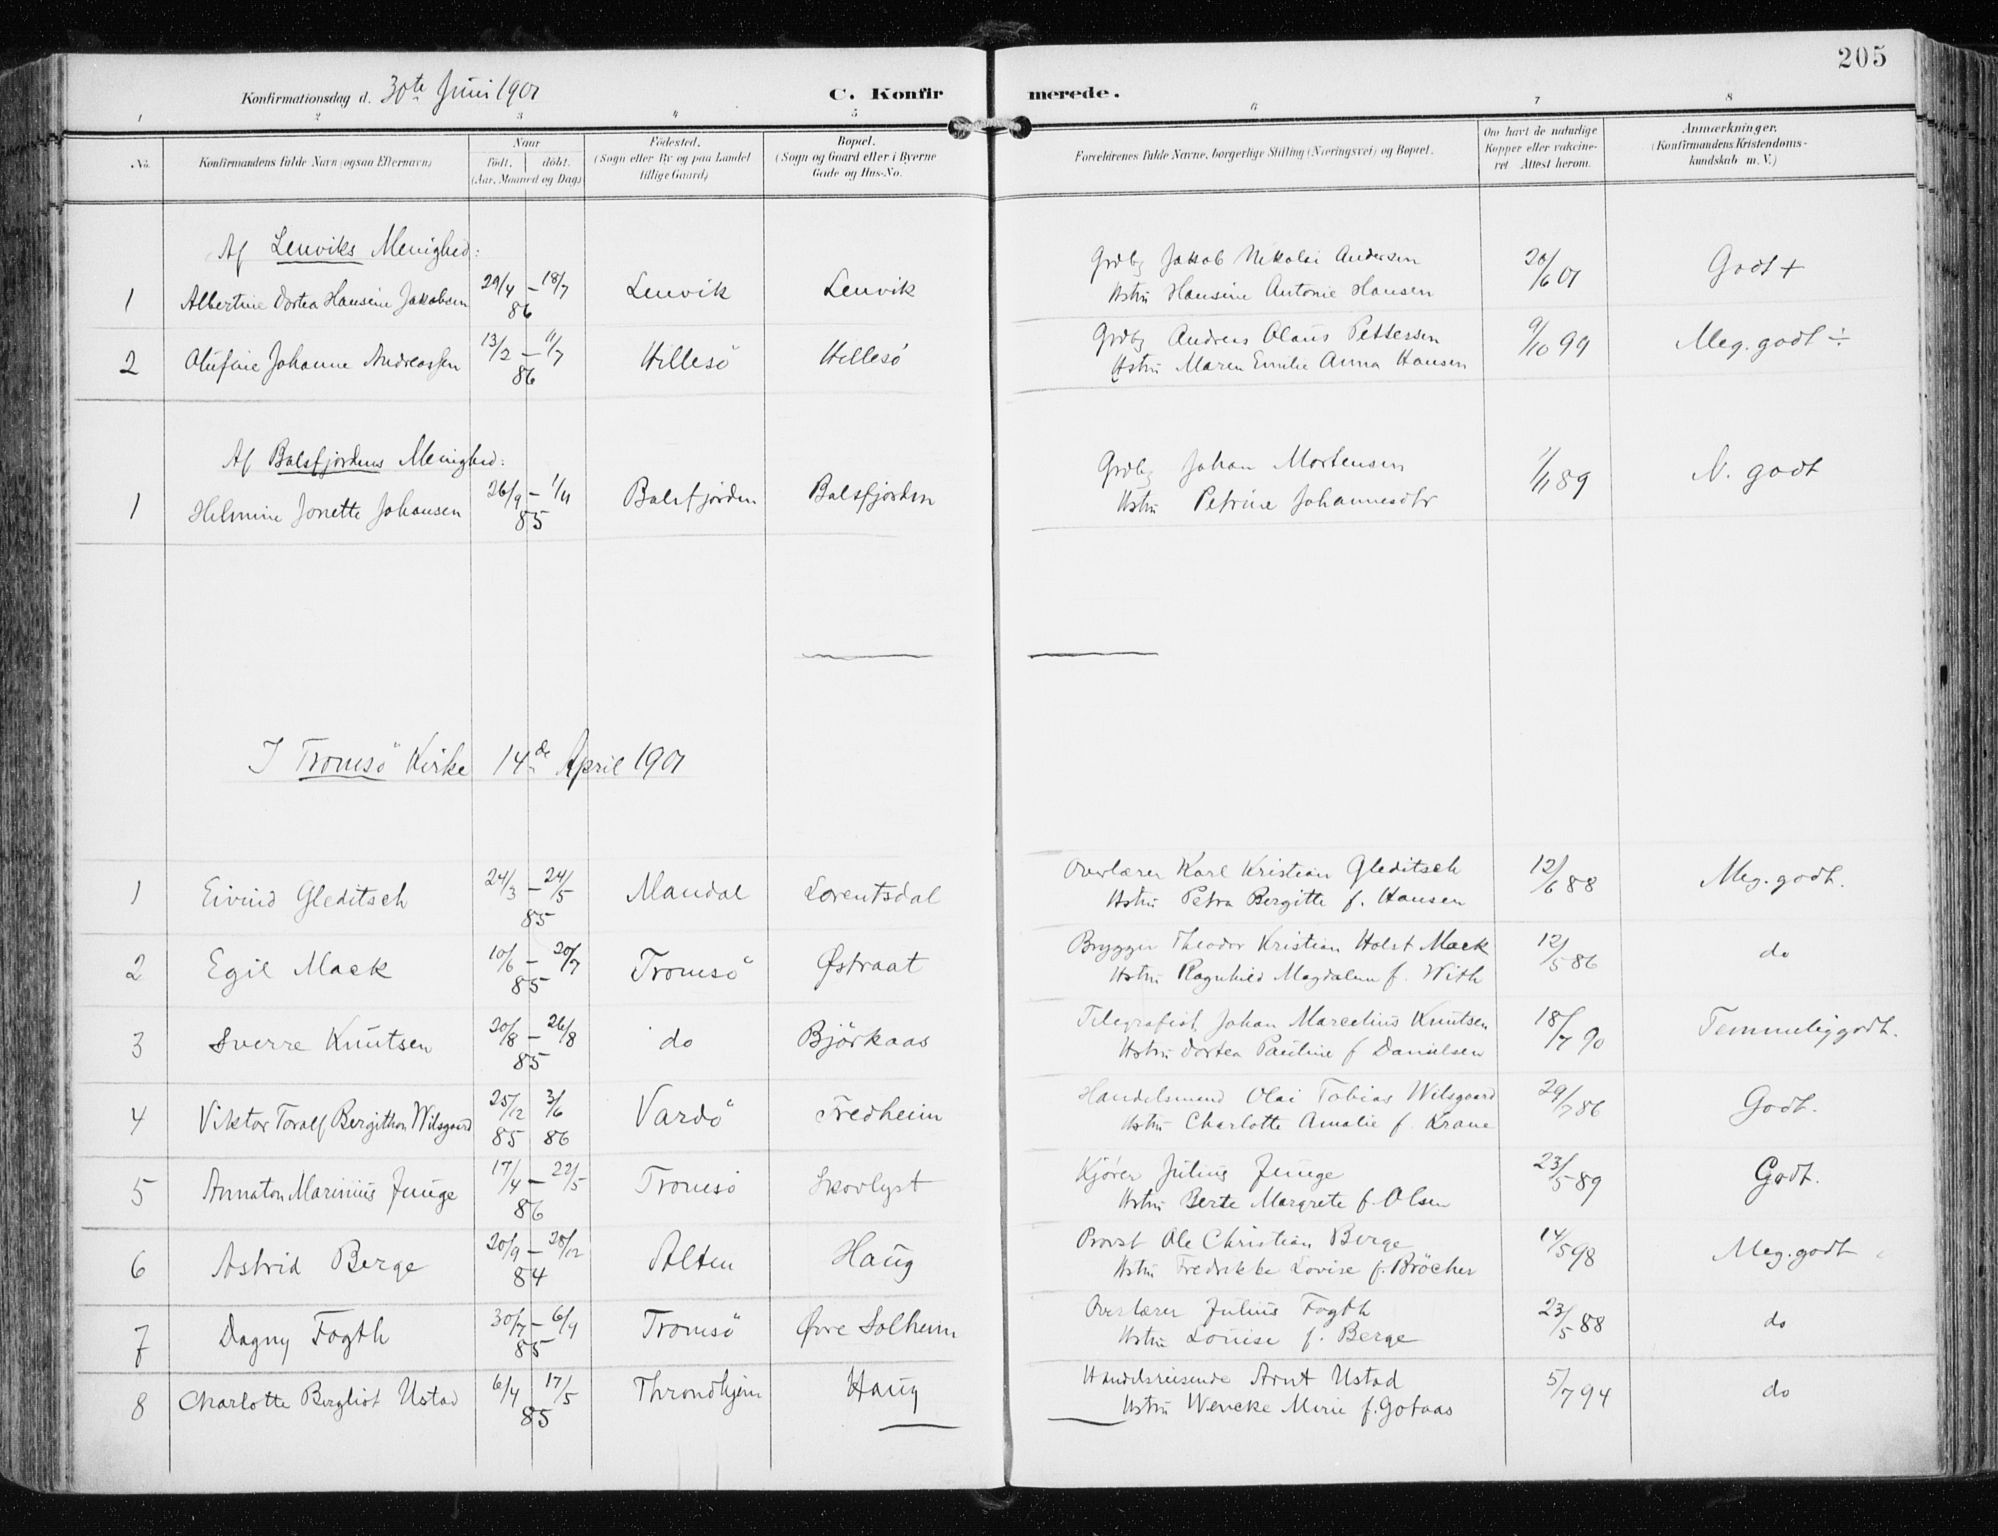 205
Konfirmationsdag d. 30te Juni 1901
C. Konfirmerede.
1 2 3 4 5 6 7 8
No. Konfirmandens fulde Navn (ogsaa Efternavn) Naar født, døbt. (Aar, Maaned og Dag) Fødested. (Sogn eller By og paa Landet tillige Gaard) Bopæl. (Sogn og Gaard eller i Byerne Gade og Hus-No. Forældrenes fulde Navne, borgerlige Stilling (Næringsvei) og Bopæl. Om havt de naturlige Kopper eller vaccineret Attest herom. Anmærkninger. (Konfirmandens Kristendomskundskab m. V.)
Af Lenviks Menighed:
1 Albertine Dortea Hansine Jakobsen 29/4 – 18/7 86 Lenvik Lenvik Grdbg Jakob Nikolai Andersen 20/6 01 Godt +
Hstru Hansine Antonie Hansen
2 Olufine Johanne Andreassen 13/2 – 11/7 86 Hillesö Hillesö Grdbg Andreas Olaus Pettersen 9/10 99 Meg. godt ÷
Hstru Maren Emilie Anna Hansen
Af Balsfjordens Menighed:
1 Helmine Jonette Johansen 26/9 – 1/11 85 Balsfjorden Balsfjorden Grdbg Johan Mortensen 1/11 89 N. godt
Hstru Petrine Johannesdtr
I Tromsö Kirke 14de April 1901
1 Eivind Gleditsch 24/3 – 24/5 85 Mandal Lorentsdal Overlærer Karl Kristian Gleditsch 12/6 88 Meg. godt.
Hstru Petra Bergitte f. Hansen
2 Egil Mack 10/6 – 20/7 85 Tromsö Østraat Brygger Theodor Kristian Holst Mack 12/5 86 do
Hstru Ragnhild Magdalena f. With
3 Sverre Knutsen 20/8 – 26/8 85 do Björkaas Telegrafist Johan Marcelius Knutsen 18/7 90 Temmelig godt.
Hstru Dortea Pauline f Danielsen
4 Viktor Toralf Bergithon Wilsgaard 25/12 85 3/6 86 Vardö Fredheim Handelsmand Olai Tobias Wilsgaard 29/7 86 Godt.
Hstru Charlotte Amalie f. Krane
5 Annaton Marinius Junge 17/4 – 22/5 86 Tromsö Skovlyst Kjører Julius Junge 23/5 89 Godt.
Hstru Berte Margrete f. Olsen
6 Astrid Berge 20/9 – 28/12 84 Alten Haug Provst Ole Christian Berge 14/5 98 Meg. godt
Hstru Fredrikke Lovise f. Bröcher
7 Dagny Fogth 30/7 – 6/9 85 Tromsö Øvre Solheim Overlærer Julius Fogth 23/5 88 do
Hstru Louise f. Berge
8 Charlotte Bergliot Ustad 6/4 17/5 85 Throndhjem Haug Handelsreisende Arnt Ustad 5/7 94 do
Hstru Wencke Mirie f. Gotaas